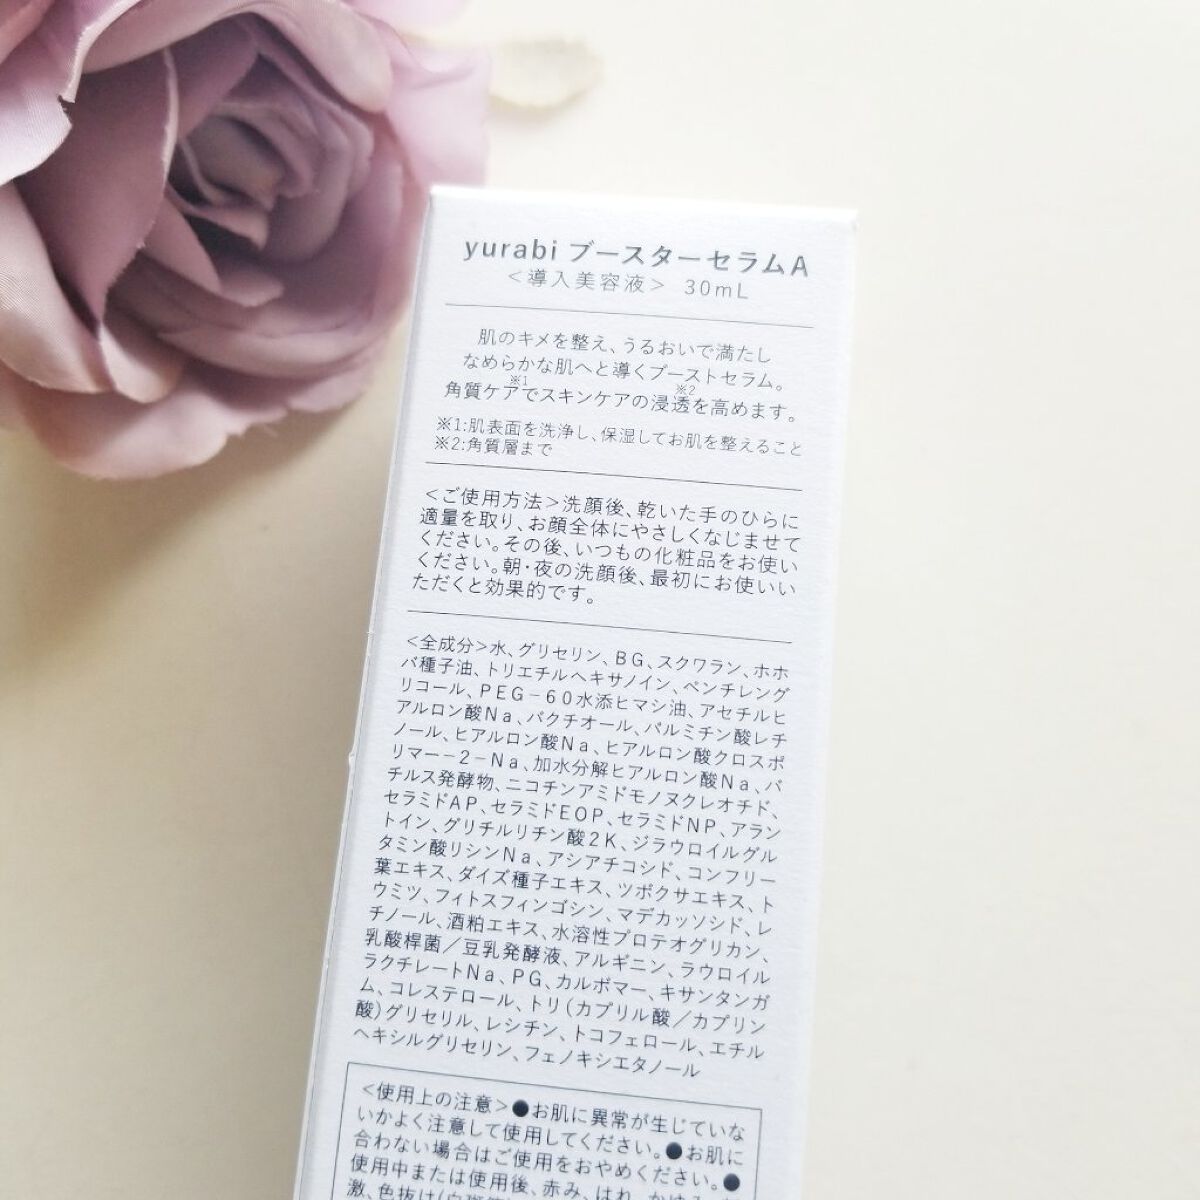 yurabi ブースターセラムA
＜導入美容液＞ 30mL
肌のキメを整え、うるおいで満たし
なめらかな肌へと導くブーストセラム。
※1 ※2
角質ケアでスキンケアの浸透を高めます。
※1:肌表面を洗浄し、保湿してお肌を整えること
※2:角質層まで
＜ご使用方法＞洗顔後、乾いた手のひらに
適量を取り、お顔全体にやさしくなじませて
ください。その後、いつもの化粧品をお使い
ください。朝・夜の洗顔後、最初にお使いい
ただくと効果的です。
＜全成分＞水、グリセリン、BG、スクワラン、ホホ
バ種子油、トリエチルヘキサノイン、ペンチレング
リコール、PEG－60水添ヒマシ油、アセチルヒ
アルロン酸Na、バクチオール、パルミチン酸レチ
ノール、ヒアルロン酸Na、ヒアルロン酸クロスポ
リマー－2－Na、加水分解ヒアルロン酸Na、バ
チルス発酵物、ニコチンアミドモノヌクレオチド、
セラミドAP、セラミドEOP、セラミドNP、アラン
トイン、グリチルリチン酸2K、ジラウロイルグル
タミン酸リシンNa、アシアチコシド、コンフリー
葉エキス、ダイズ種子エキス、ツボクサエキス、ト
ウミツ、フィトスフィンゴシン、マデカッソシド、レ
チノール、酒粕エキス、水溶性プロテオグリカン、
乳酸桿菌／豆乳発酵液、アルギニン、ラウロイル
ラクチレートNa、PG、カルボマー、キサンタンガ
ム、コレステロール、トリ(カプリル酸／カプリン
酸)グリセリル、レシチン、トコフェロール、エチル
ヘキシルグリセリン、フェノキシエタノール
＜使用上の注意＞●お肌に異常が生じていな
いかよく注意して使用してください。●お肌に
合わない場合はご使用をおやめください。●
使用中または使用後、赤み、はれ、かゆみ、
激、色抜け(白斑